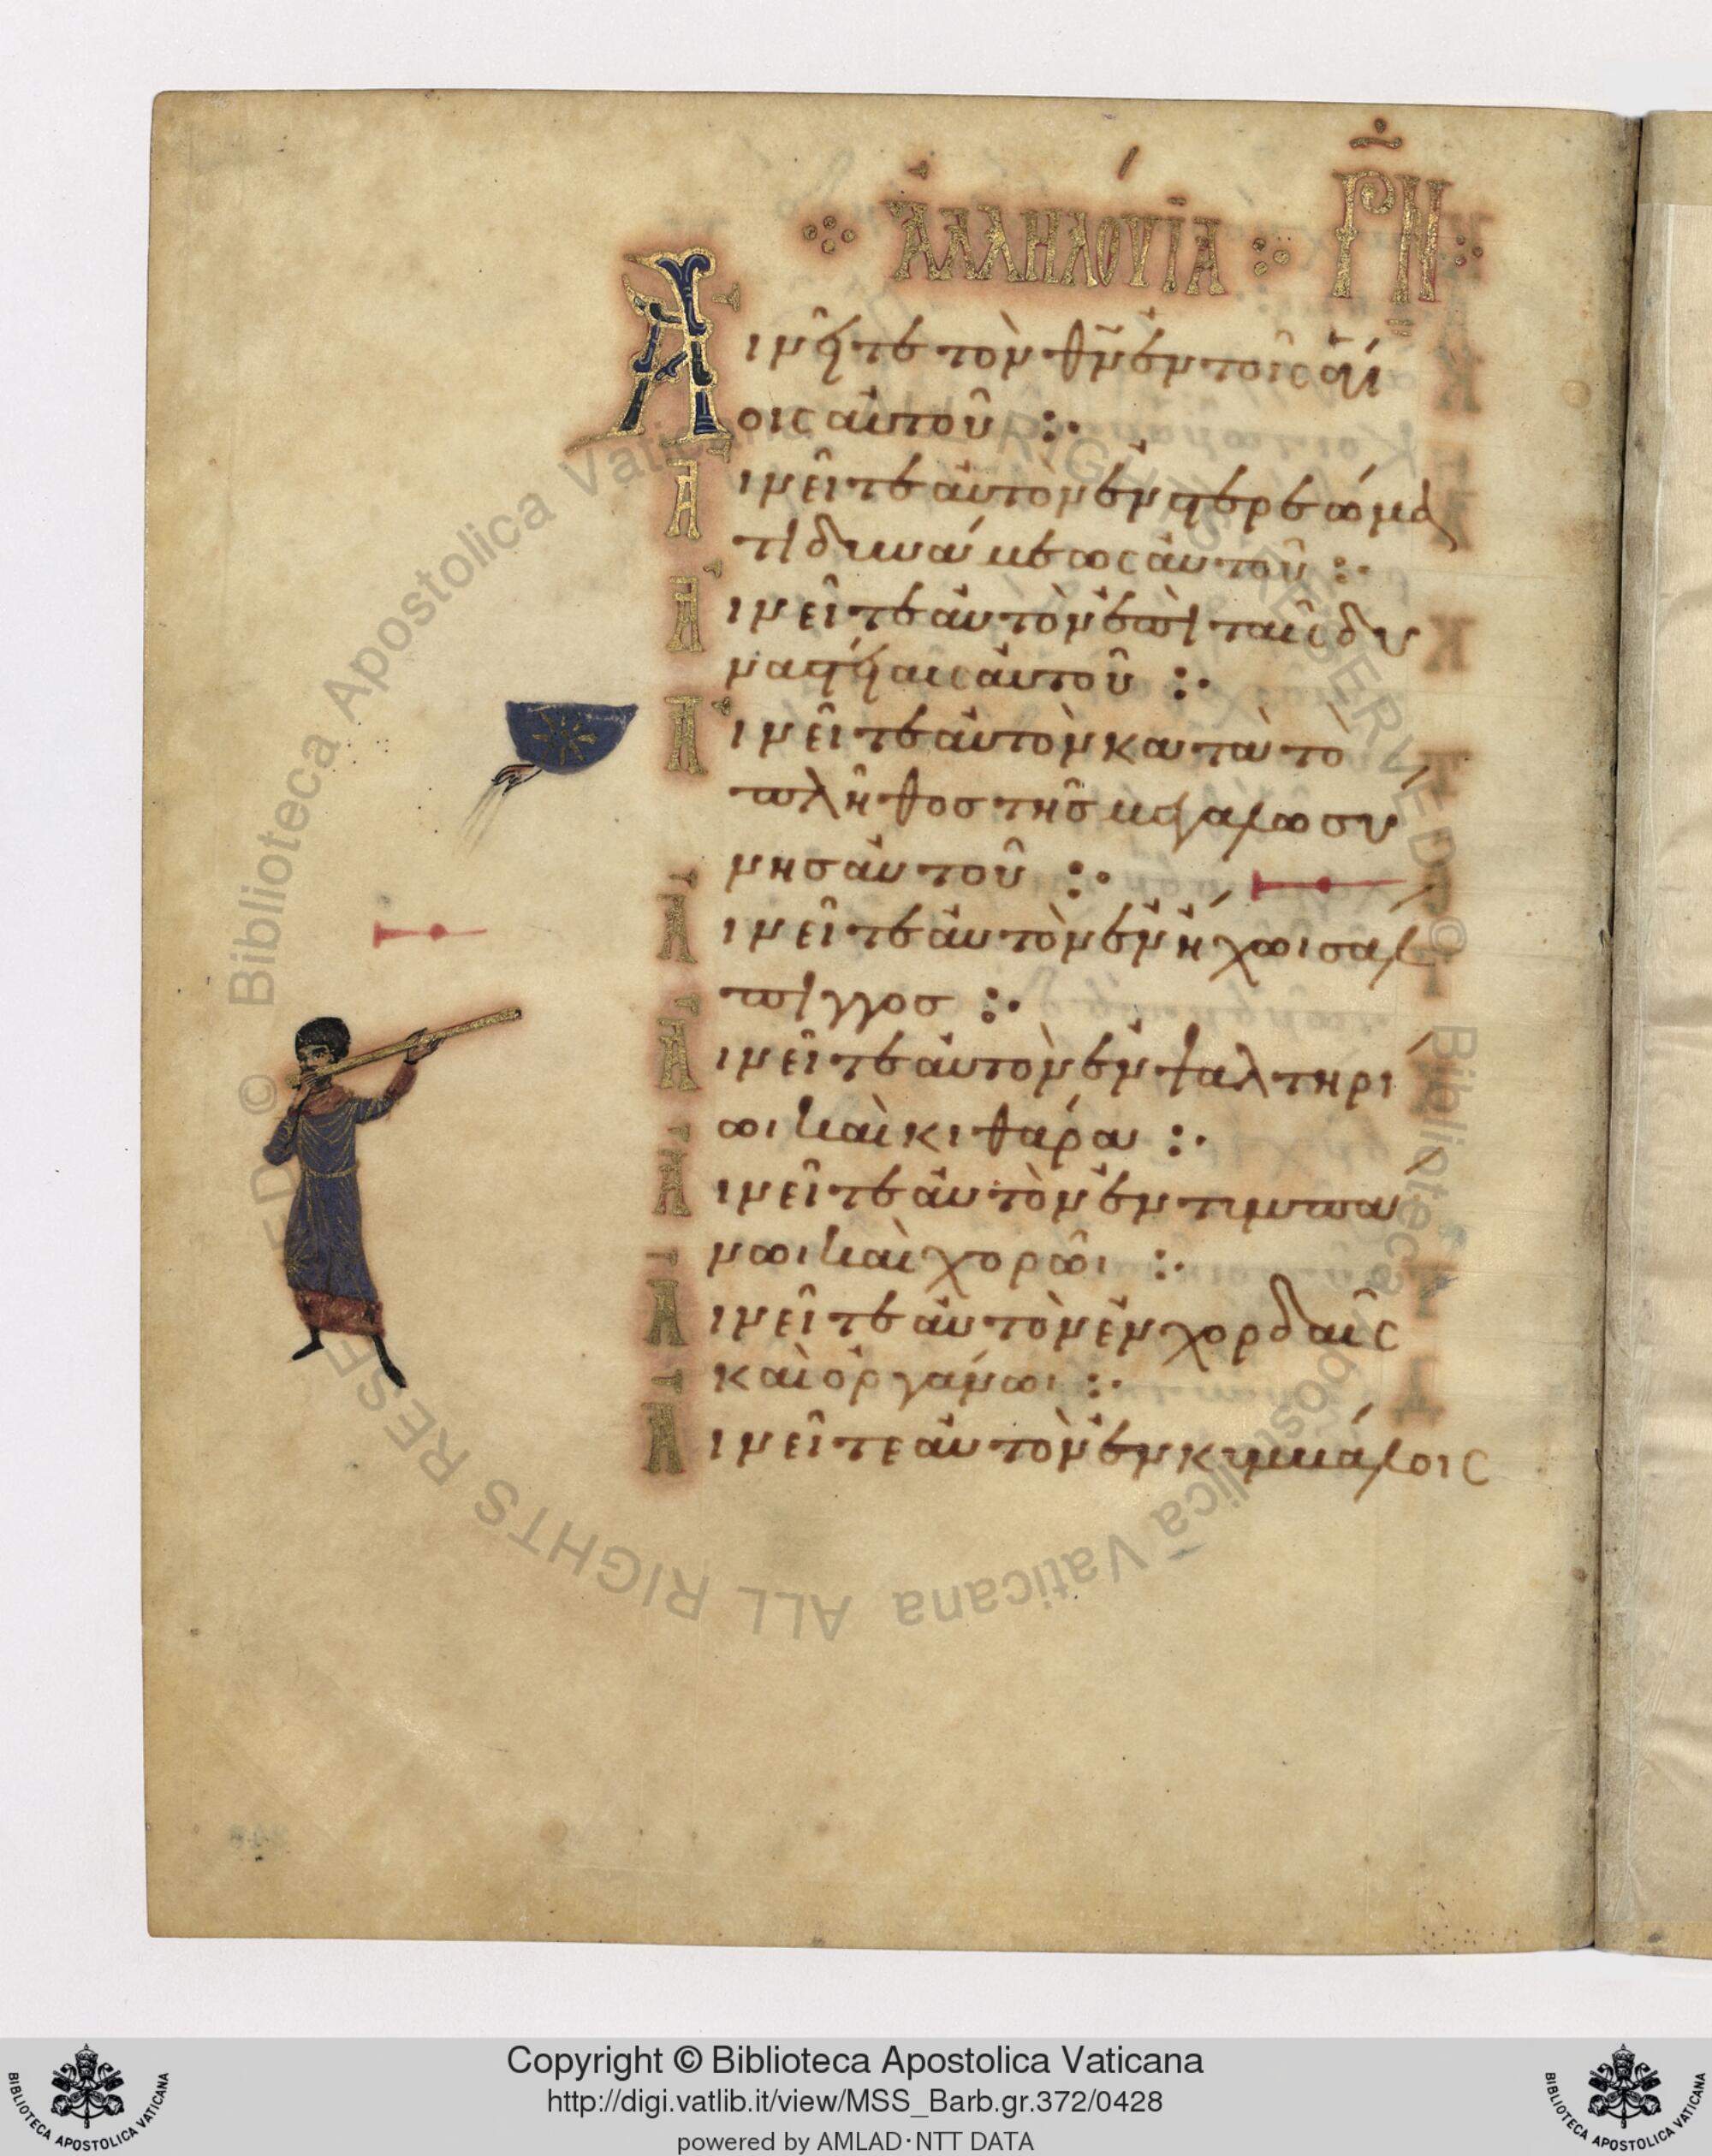 ἈΛΛΗΛΟΥΪΑ ΡΝ
Αἰνεῖτε τὸν θ̅ν̅ ἐν τοῖς ἁγί
οις αὐτοῦ :·
Αἰνεῖτε αὐτὸν ἐν στερεώμα
τι δυνάμεως αὐτοῦ :·
Αἰνεῖτε αὐτὸν ἐπὶ ταῖς δυ
ναστείαις αὐτοῦ :·
Αἰνεῖτε αὐτὸν κατὰ τὸ
πλῆθος τῆς μεγαλωσύ
νης αὐτοῦ :·
Αἰνεῖτε αὐτὸν ἐν ἤχωι σάλ
πιγγος :·
Αἰνεῖτε αὐτὸν ἐν ψαλτηρί
ωι καὶ κιθάρα :·
Αἰνεῖτε αὐτὸν ἐν τυμπά
νωι καὶ χορῶι :·
Αἰνεῖτε αὐτὸν ἐν χορδαῖς
καὶ ὀργάνωι :·
Αἰνεῖτε αὐτὸν ἐν κυμβάλοις
© Biblioteca Apostolica Vaticana ALL RIGHTS RESERVED
© Biblioteca Apostolica Vaticana ALL RIGHTS RESERVED
Copyright © Biblioteca Apostolica Vaticana
http://digi.vatlib.it/view/MSS_Barb.gr.372/0428
powered by AMLAD·NTT DATA
BIBLIOTECA APOSTOLICA VATICANA
BIBLIOTECA APOSTOLICA VATICANA